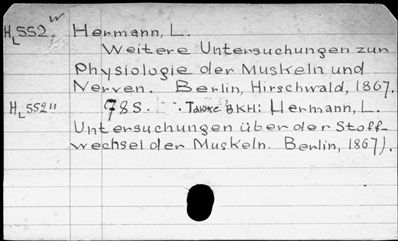 HL552w Hermann, L.
Weitere Untersuchungen zur
Physiologie der Muskeln und
Nerven. Berlin, Hirschwald, 1867.
HL552u 78 S. BKH: Hermann, L.
Untersuchungen über der Stoff-
wechsel der Muskeln. Berlin, 1867).